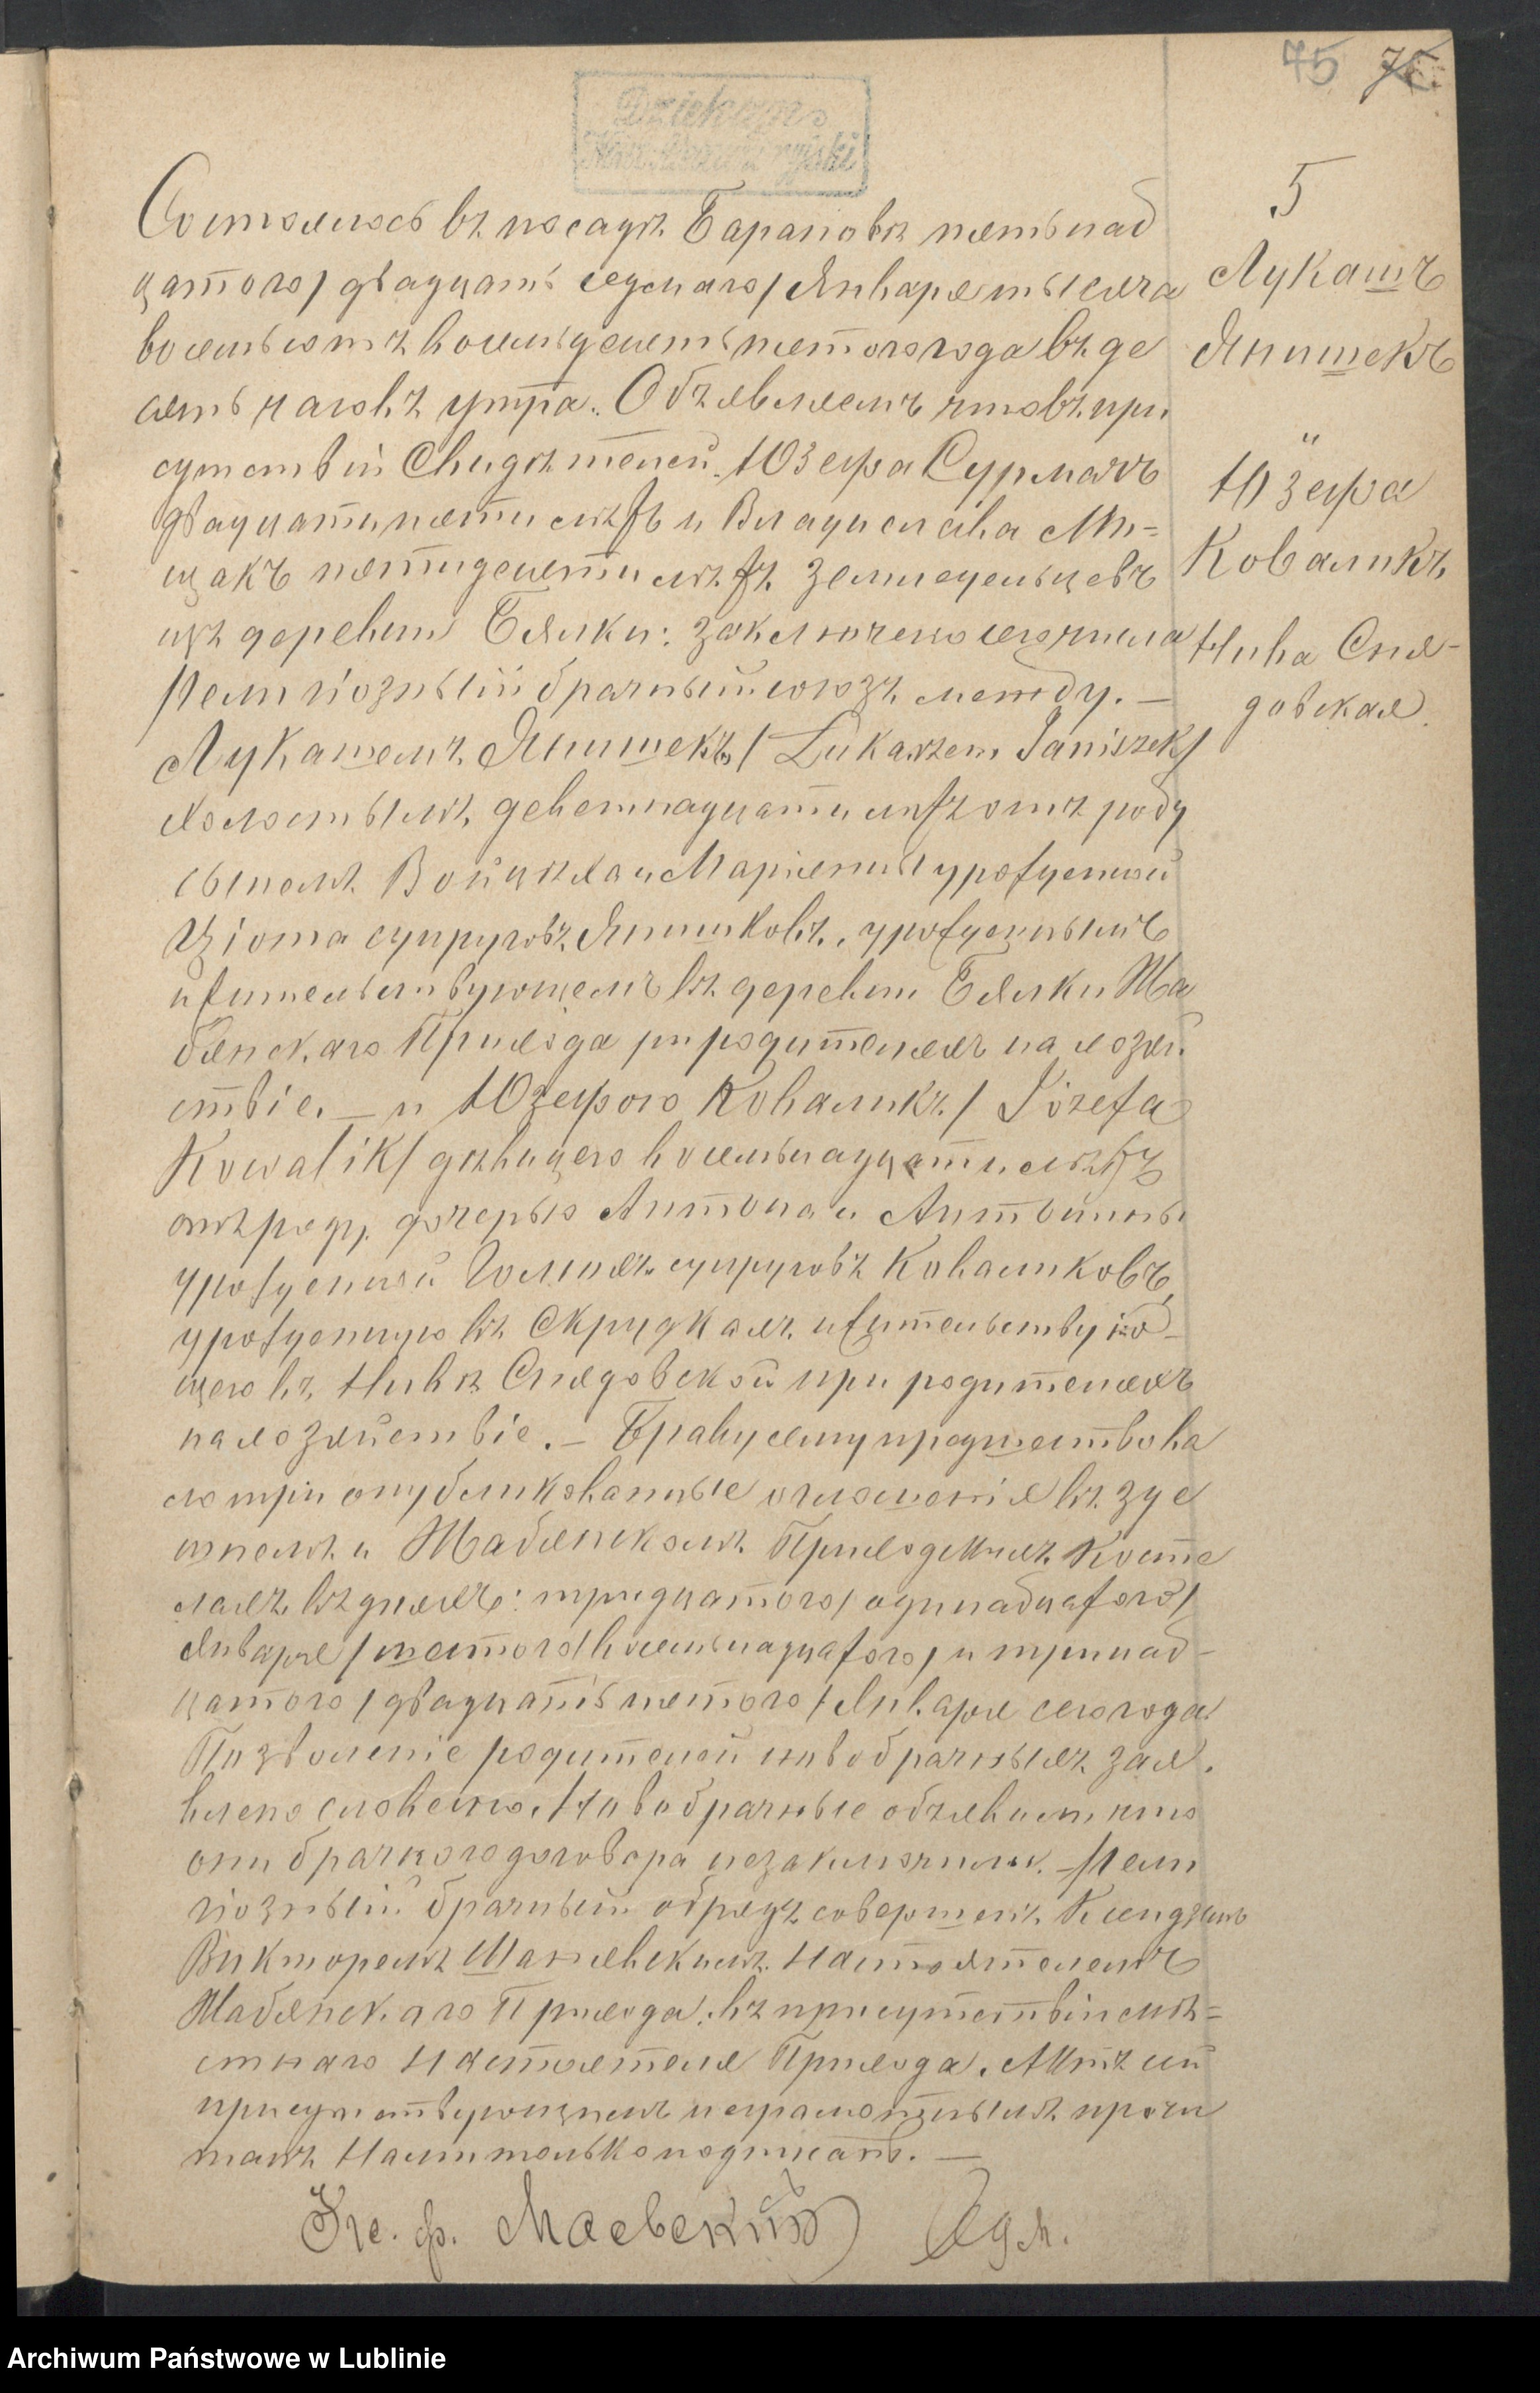 75 75
Dziekan
5
Лукашъ
Янишекъ
"
Юзефа
Коваликъ
Нива Сня-
довская.
Состоялось въ посадѣ Барановѣ пятьнад
цатого/двадцать седмаго/Января тысяча
восемьсотъ восемьдесятъ пятого года въ де
сять часовъ утра. Объявляемъ что въ при
сутствій Свидѣтелей Юзефа Сурмачъ
двадцати пяти лѣтъ и Владислава Ми=
щакъ пятидесяти лѣтъ земледельцевъ
изъ деревни Бялки: заключено сего числа
Религіозный брачный союзъ между. —
Лукашемъ Янишекъ/Łukaszem Janiszek/
холостымъ, девятнадцати лѣтъ отъ роду
сыномъ Войцѣха и Маріянны урожденной
Цiота супруговъ Янишковъ, урожденнымъ
и жительствующемъ въ деревни Бялки Жа
бянскаго Прихода при родителяхъ на хозяй
ствіе. — и Юзефою Коваликъ/Józefa
Kowalik/дѣвицею восемьнадцати лѣтъ
отъ роду, дочерью Антона и Антонины
урожденной супруговъ Коваликовъ,
урожденною въ Скрудкахъ и жительствую-
щею въ Нивѣ Снядовской при родителяхъ
на хозяйствіе. — Браку сему предшествова
ло три опубликованные оглошенія въ зде
шнемъ и Жабянскомъ Приходскихъ Косте
лахъ въ дняхъ: тридцатого/одинадцатого/
Января/шестого/восемьнадцатого/и тринад-
цатого/двадцать пятого/Января сего года
Позволеніе родителей новобрачныхъ зая.
влено словесно. Новобрачные объявили что
они брачного договора незаключили. — Рели
гіозный брачный обрядъ совершенъ Ксендземъ
Викторемъ Настоятелемъ
Жабянскаго Прихода, въ присутствіи мѣ=
стнаго Настоятеля Прихода. Актъ сей
присутствующимъ неграмотнымъ прочи
танъ Нами только подписанъ. —
Кс. ф. Маевскій